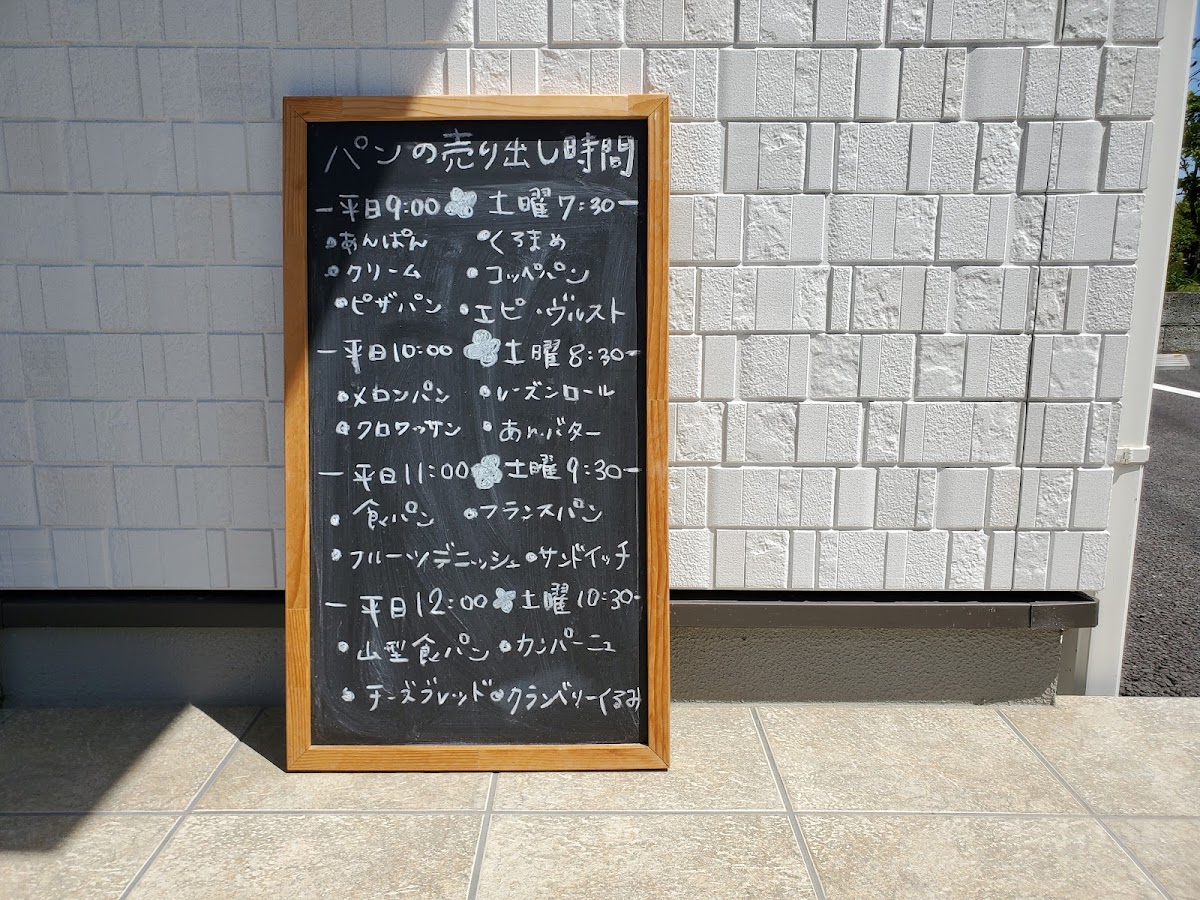 パンの売り出し時間
ー平日9:00 土曜7:30ー
•あんぱん •くろまめ
•クリーム •コッペパン
•ピザパン •エピ・ヴルスト
ー平日10:00 土曜8:30ー
•メロンパン •レーズンロール
•クロワッサン •あんバター
ー平日11:00 土曜9:30ー
•食パン •フランスパン
•フルーツデニッシュ •サンドイッチ
ー平日12:00 土曜10:30ー
•山型食パン •カンパーニュ
•チーズブレッド •クランベリーくるみ